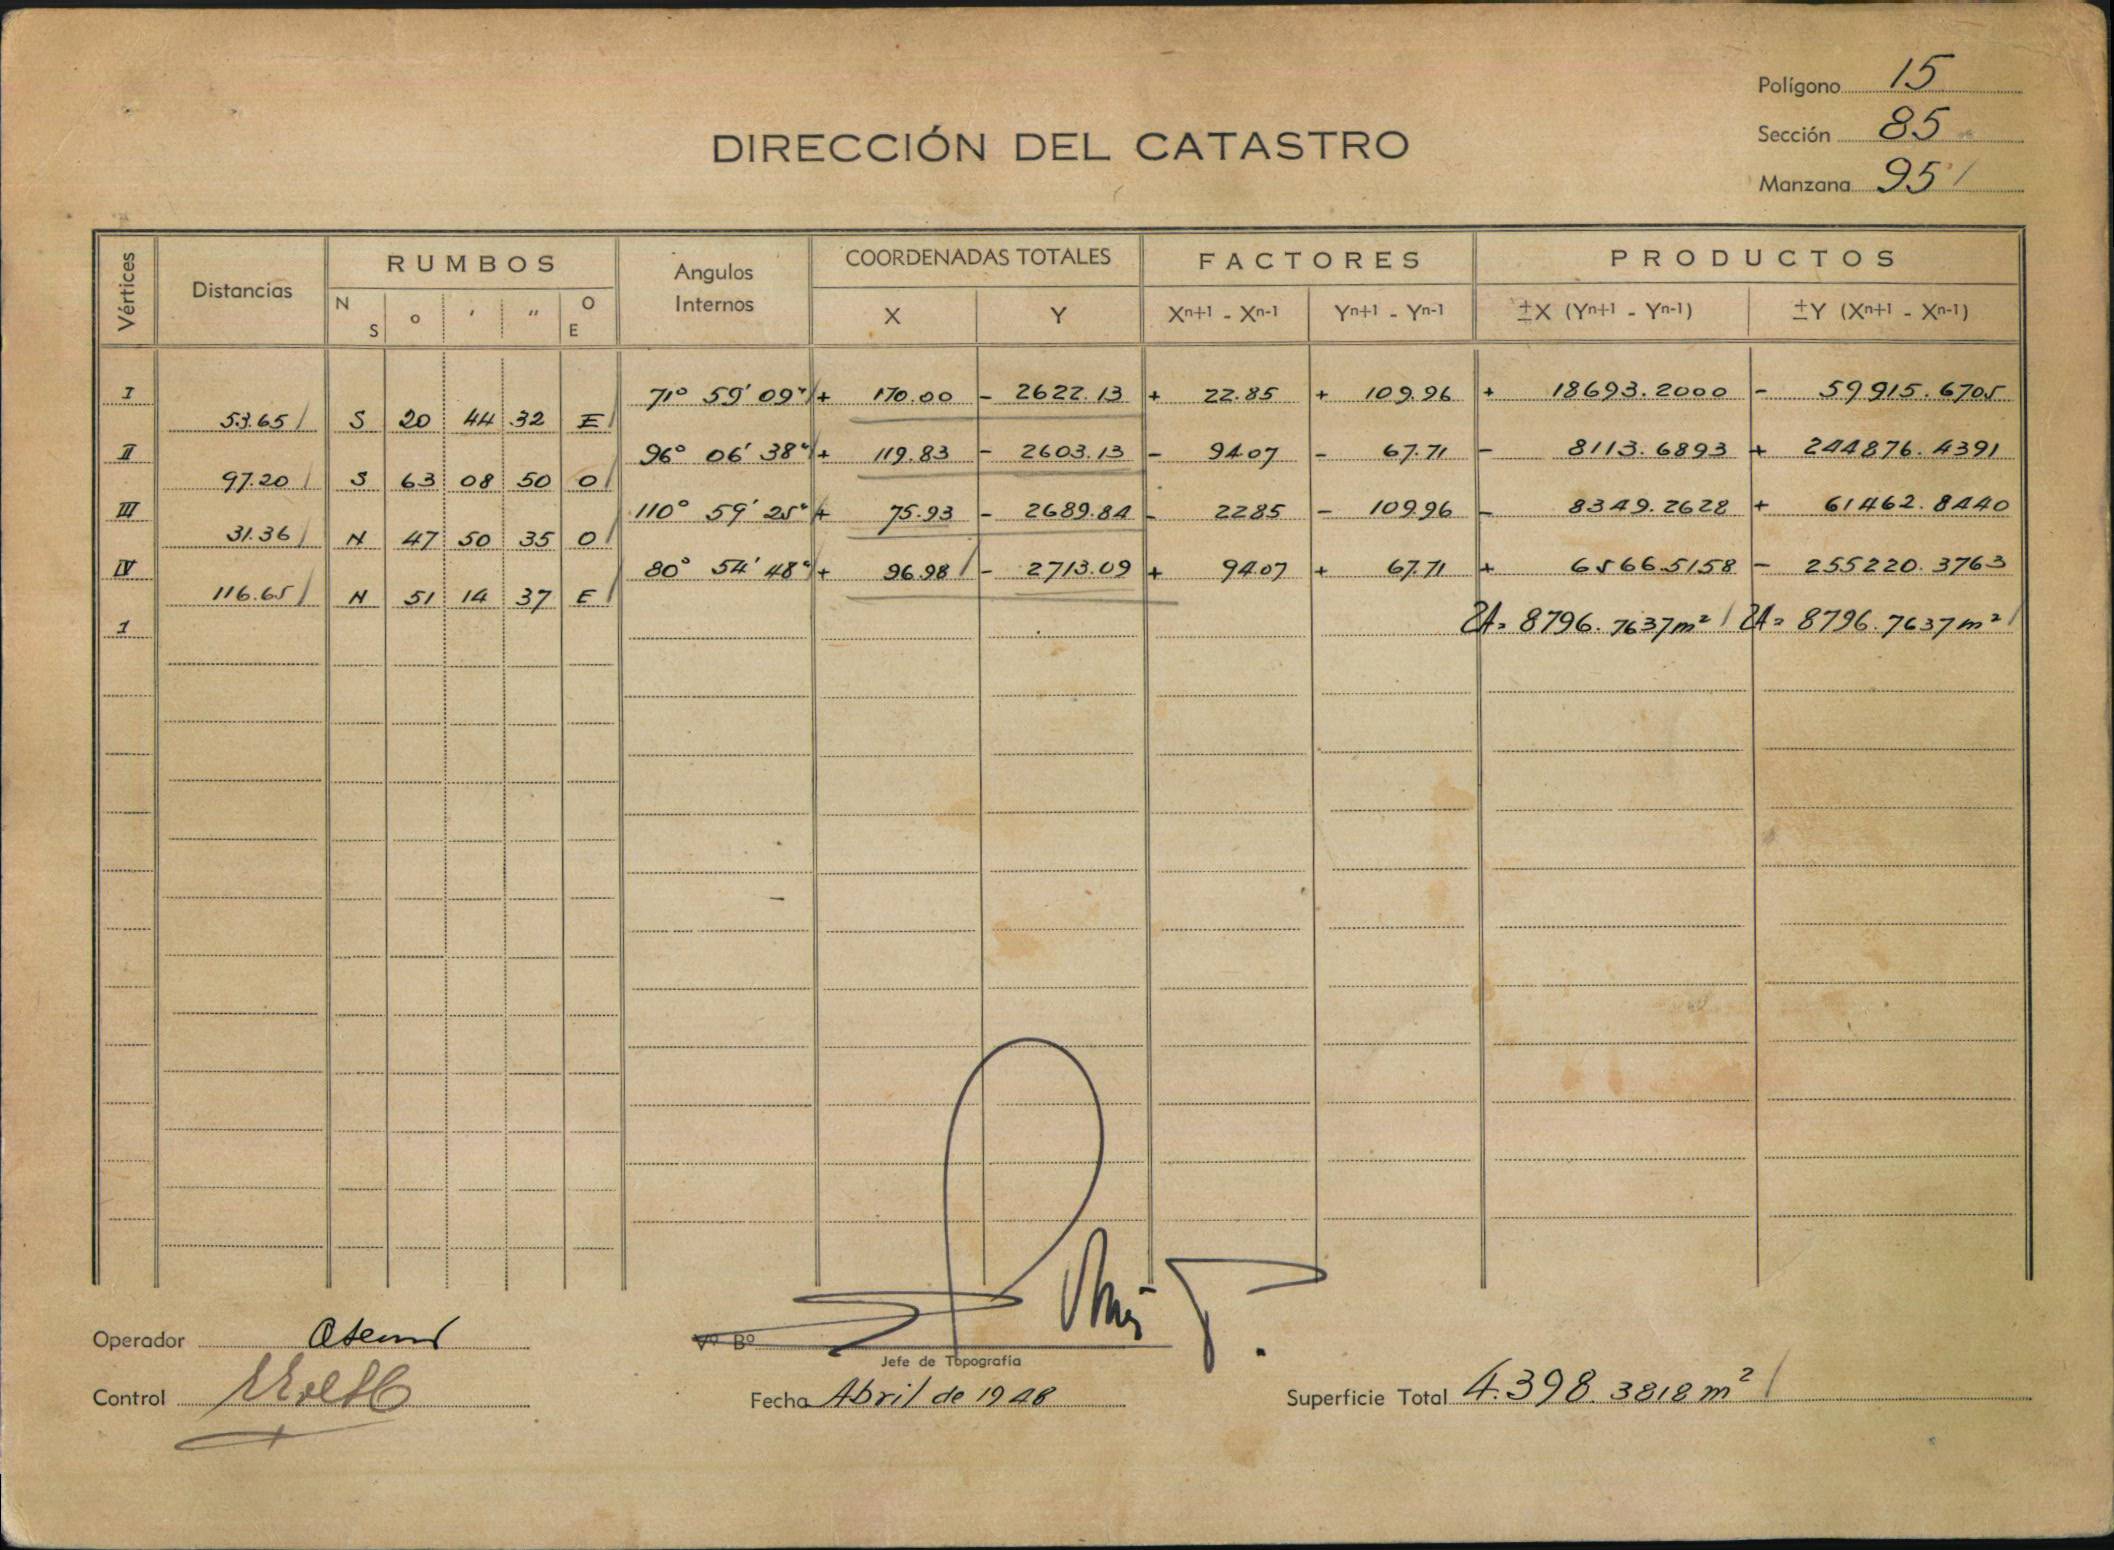 Polígono 15
Sección 85
Manzana 95
DIRECCIÓN DEL CATASTRO
Vértices Distancias RUMBOS Angulos Internos COORDENADAS TOTALES FACTORES PRODUCTOS
N S o ' " O E X Y Xn+1 - Xn-1 Yn+1 - Yn-1 ±X (Yn+1 - Yn-1) ±Y (Xn+1 - Xn-1)
I 71° 59' 09" + 170.00 - 2622.13 + 22.85 + 109.96 + 18693.2000 - 59915.6705
53.65 S 20 44 32 E
II 96° 06' 38" + 119.83 - 2603.13 - 94.07 - 67.71 - 8113.6893 + 244876.4391
97.20 S 63 08 50 O
III 110° 59' 25" + 75.93 - 2689.84 - 22.85 - 109.96 - 8349.2628 + 61462.8440
31.36 N 47 50 35 O
IV 80° 54' 48" + 96.98 - 2713.09 + 94.07 + 67.71 + 6566.5158 - 255220.3763
116.65 N 51 14 37 E
I 2A = 8796.7637 m² 2A = 8796.7637 m²
Operador
Vº Bº
Jefe de Topografía
Control
Fecha Abril de 1948
Superficie Total 4.398.3818 m²